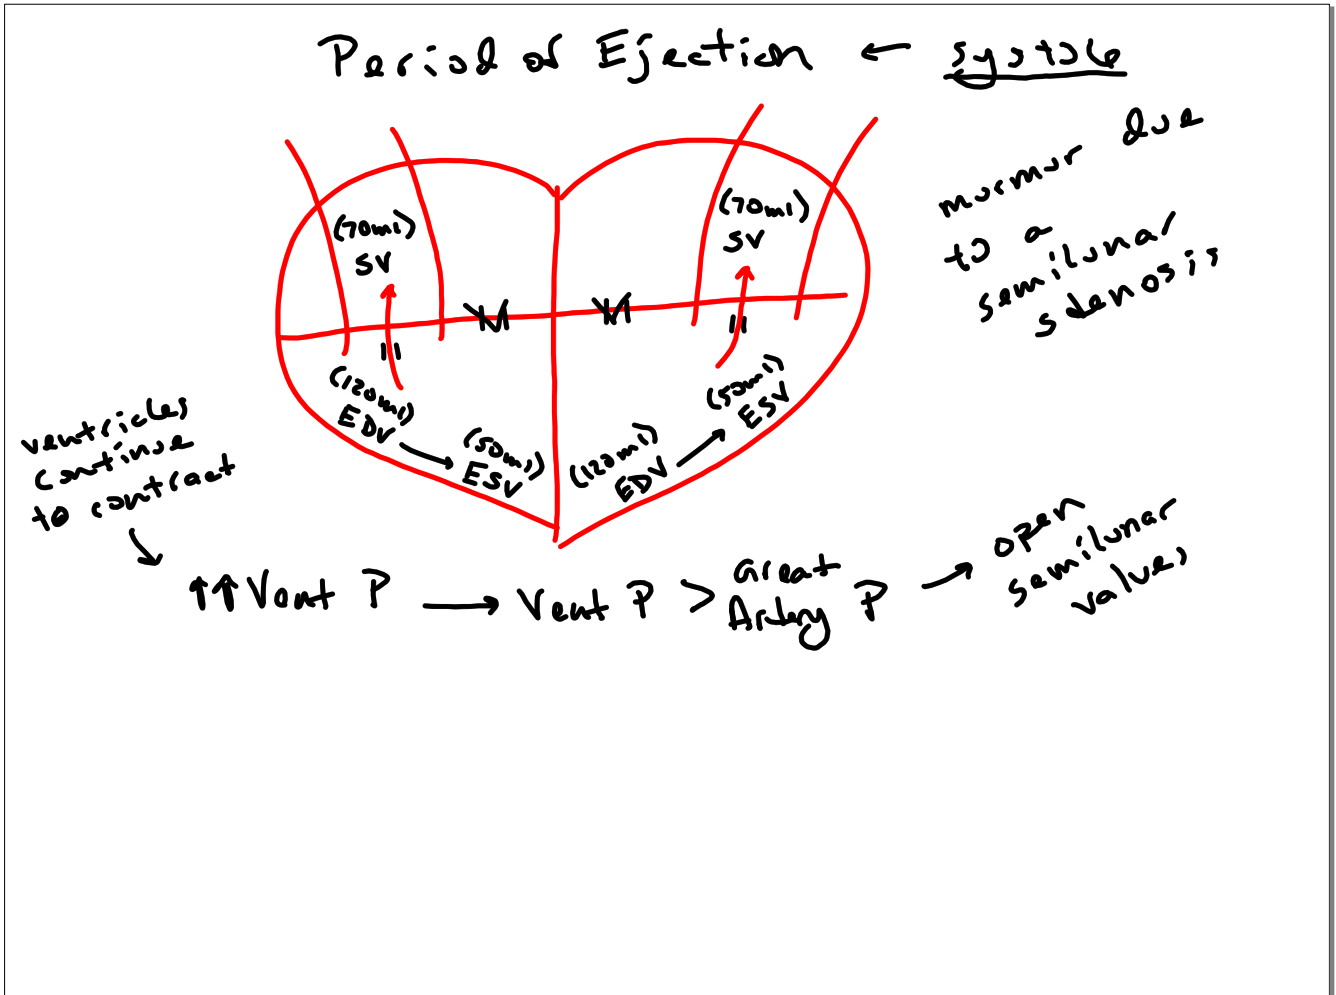 Period of Ejection ← systole
murmur due
to a
semilunar
stenosis
(70ml)
SV
(70ml)
SV
(120ml)
EDV → (50ml)
ESV
(120ml)
EDV → (50ml)
ESV
ventricles
continue
to contract
↑↑ Vent P → Vent P > Great
Artery P → open
semilunar
valves